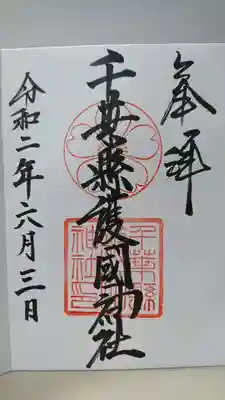 奉拝
千葉縣護國神社
千葉縣護國神社印
令和二年六月三日